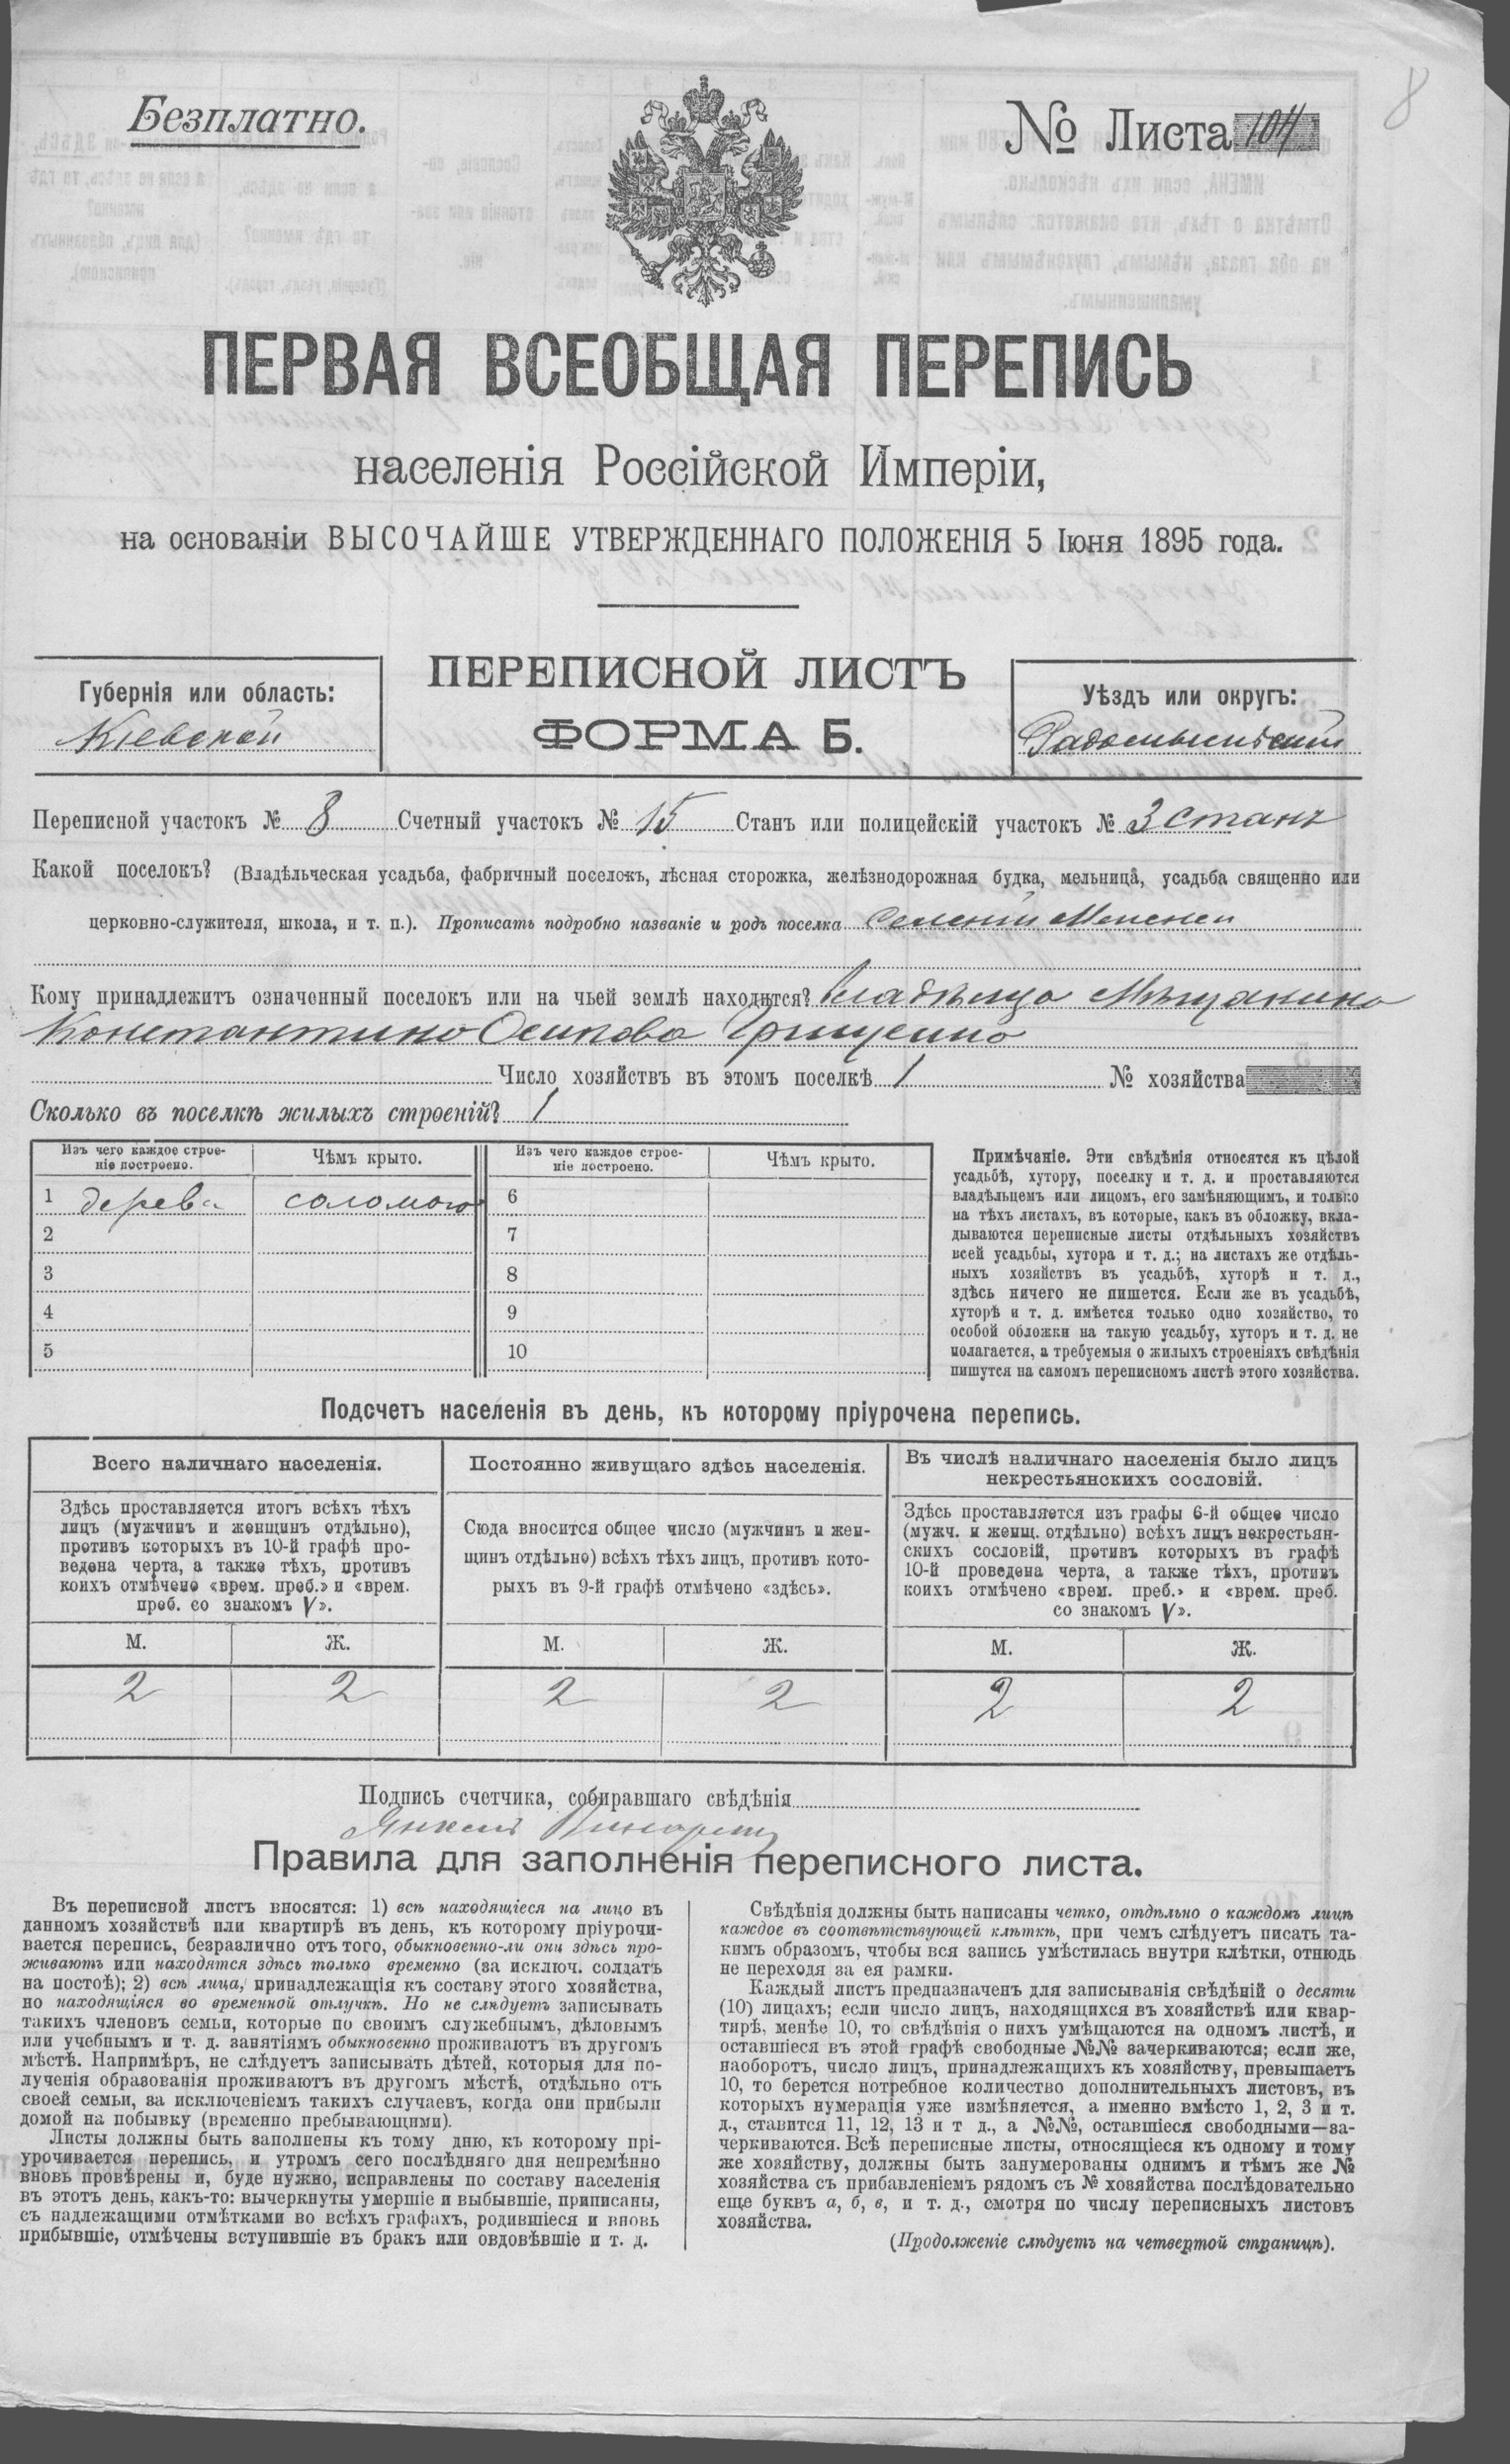 8
Безплатно.
№ Листа 104
ПЕРВАЯ ВСЕОБЩАЯ ПЕРЕПИСЬ
населенія Россійской Имперіи,
на основаніи ВЫСОЧАЙШЕ УТВЕРЖДЕННАГО ПОЛОЖЕНІЯ 5 Іюня 1895 года.
ПЕРЕПИСНОЙ ЛИСТЪ
ФОРМА Б.
Губернія или область:
Кіевской
Уѣздъ или округъ:
Радомысльскій
Переписной участокъ № 8 Счетный участокъ № 15 Станъ или полицейскій участокъ № 3 Станъ
Какой поселокъ? (Владѣльческая усадьба, фабричный поселокъ, лѣсная сторожка, желѣзнодорожная будка, мельница, усадьба священно или
церковно-служителя, школа, и т. п.). Прописать подробно названіе и родъ поселка
Кому принадлежитъ означенный поселокъ или на чьей землѣ находится? владельца Мѣщанина
Константина Осипова Грищенко
Число хозяйствъ въ этомъ поселкѣ 1 № хозяйства
Сколько въ поселкѣ жилыхъ строеній? 1
Изъ чего каждое строе-
ніе построено.
Чѣмъ крыто.
Изъ чего каждое строе-
ніе построено.
Чѣмъ крыто.
1 дерева соломою 6
2 7
3 8
4 9
5 10
Примѣчаніе. Эти свѣдѣнія относятся къ цѣлой
усадьбѣ, хутору, поселку и т. д. и проставляются
владѣльцемъ или лицомъ, его замѣняющимъ, и только
на тѣхъ листахъ, въ которые, какъ въ обложку, вкла-
дываются переписные листы отдѣльныхъ хозяйствъ
всей усадьбы, хутора и т. д.; на листахъ же отдѣль-
ныхъ хозяйствъ въ усадьбѣ, хуторѣ и т. д.,
здѣсь ничего не пишется. Если же въ усадьбѣ,
хуторѣ и т. д. имѣется только одно хозяйство, то
особой обложки на такую усадьбу, хуторъ и т. д. не
полагается, а требуемыя о жилыхъ строеніяхъ свѣдѣнія
пишутся на самомъ переписномъ листѣ этого хозяйства.
Подсчетъ населенія въ день, къ которому пріурочена перепись.
Всего наличнаго населенія.
Здѣсь проставляется итогъ всѣхъ тѣхъ
лицъ (мужчинъ и женщинъ отдѣльно),
противъ которыхъ въ 10-й графѣ про-
ведена черта, а также тѣхъ, противъ
коихъ отмѣчено «врем. преб.» и «врем.
преб. со знакомъ V».
Постоянно живущаго здѣсь населенія.
Сюда вносится общее число (мужчинъ и жен-
щинъ отдѣльно) всѣхъ тѣхъ лицъ, противъ кото-
рыхъ въ 9-й графѣ отмѣчено «здѣсь».
Въ числѣ наличнаго населенія было лицъ
некрестьянскихъ сословій.
Здѣсь проставляется изъ графы 6-й общее число
(мужч. и женщ. отдѣльно) всѣхъ лицъ некрестьян-
скихъ сословій, противъ которыхъ въ графѣ
10-й проведена черта, а также тѣхъ, противъ
коихъ отмѣчено «врем. преб.» и «врем. преб.
со знакомъ V».
М. Ж. М. Ж. М. Ж.
2 2 2 2 2 2
Подпись счетчика, собиравшаго свѣдѣнія
Янкель
Правила для заполненія переписного листа.
Въ переписной листъ вносятся: 1) всѣ находящіеся на лицо въ
данномъ хозяйствѣ или квартирѣ въ день, къ которому пріурочи-
вается перепись, безразлично отъ того, обыкновенно-ли они здѣсь про-
живаютъ или находятся здѣсь только временно (за исключ. солдатъ
на постоѣ); 2) всѣ лица, принадлежащія къ составу этого хозяйства,
но находящіяся во временной отлучкѣ. Но не слѣдуетъ записывать
такихъ членовъ семьи, которые по своимъ служебнымъ, дѣловымъ
или учебнымъ и т. д. занятіямъ обыкновенно проживаютъ въ другомъ
мѣстѣ. Напримѣръ, не слѣдуетъ записывать дѣтей, которыя для по-
лученія образованія проживаютъ въ другомъ мѣстѣ, отдѣльно отъ
своей семьи, за исключеніемъ такихъ случаевъ, когда они прибыли
домой на побывку (временно пребывающими).
Листы должны быть заполнены къ тому дню, къ которому прі-
урочивается перепись, и утромъ сего послѣдняго дня непремѣнно
вновь провѣрены и, буде нужно, исправлены по составу населенія
въ этотъ день, какъ-то: вычеркнуты умершіе и выбывшіе, приписаны,
съ надлежащими отмѣтками во всѣхъ графахъ, родившіеся и вновь
прибывшіе, отмѣчены вступившіе въ бракъ или овдовѣвшіе и т. д.
Свѣдѣнія должны быть написаны четко, отдѣльно о каждомъ лицѣ
каждое въ соотвѣтствующей клѣткѣ, при чемъ слѣдуетъ писать та-
кимъ образомъ, чтобы вся запись умѣстилась внутри клѣтки, отнюдь
не переходя за ея рамки.
Каждый листъ предназначенъ для записыванія свѣдѣній о десяти
(10) лицахъ; если число лицъ, находящихся въ хозяйствѣ или квар-
тирѣ, менѣе 10, то свѣдѣнія о нихъ умѣщаются на одномъ листѣ, и
оставшіеся въ этой графѣ свободные №№ зачеркиваются; если же,
наоборотъ, число лицъ, принадлежащихъ къ хозяйству, превышаетъ
10, то берется потребное количество дополнительныхъ листовъ, въ
которыхъ нумерація уже измѣняется, а именно вмѣсто 1, 2, 3 и т.
д., ставится 11, 12, 13 и т д., а №№, оставшіеся свободными—за-
черкиваются. Всѣ переписные листы, относящіеся къ одному и тому
же хозяйству, должны быть занумерованы однимъ и тѣмъ же №
хозяйства съ прибавленіемъ рядомъ съ № хозяйства послѣдовательно
еще буквъ а, б, в, и т. д., смотря по числу переписныхъ листовъ
хозяйства.
(Продолженіе слѣдуетъ на четвертой страницѣ).